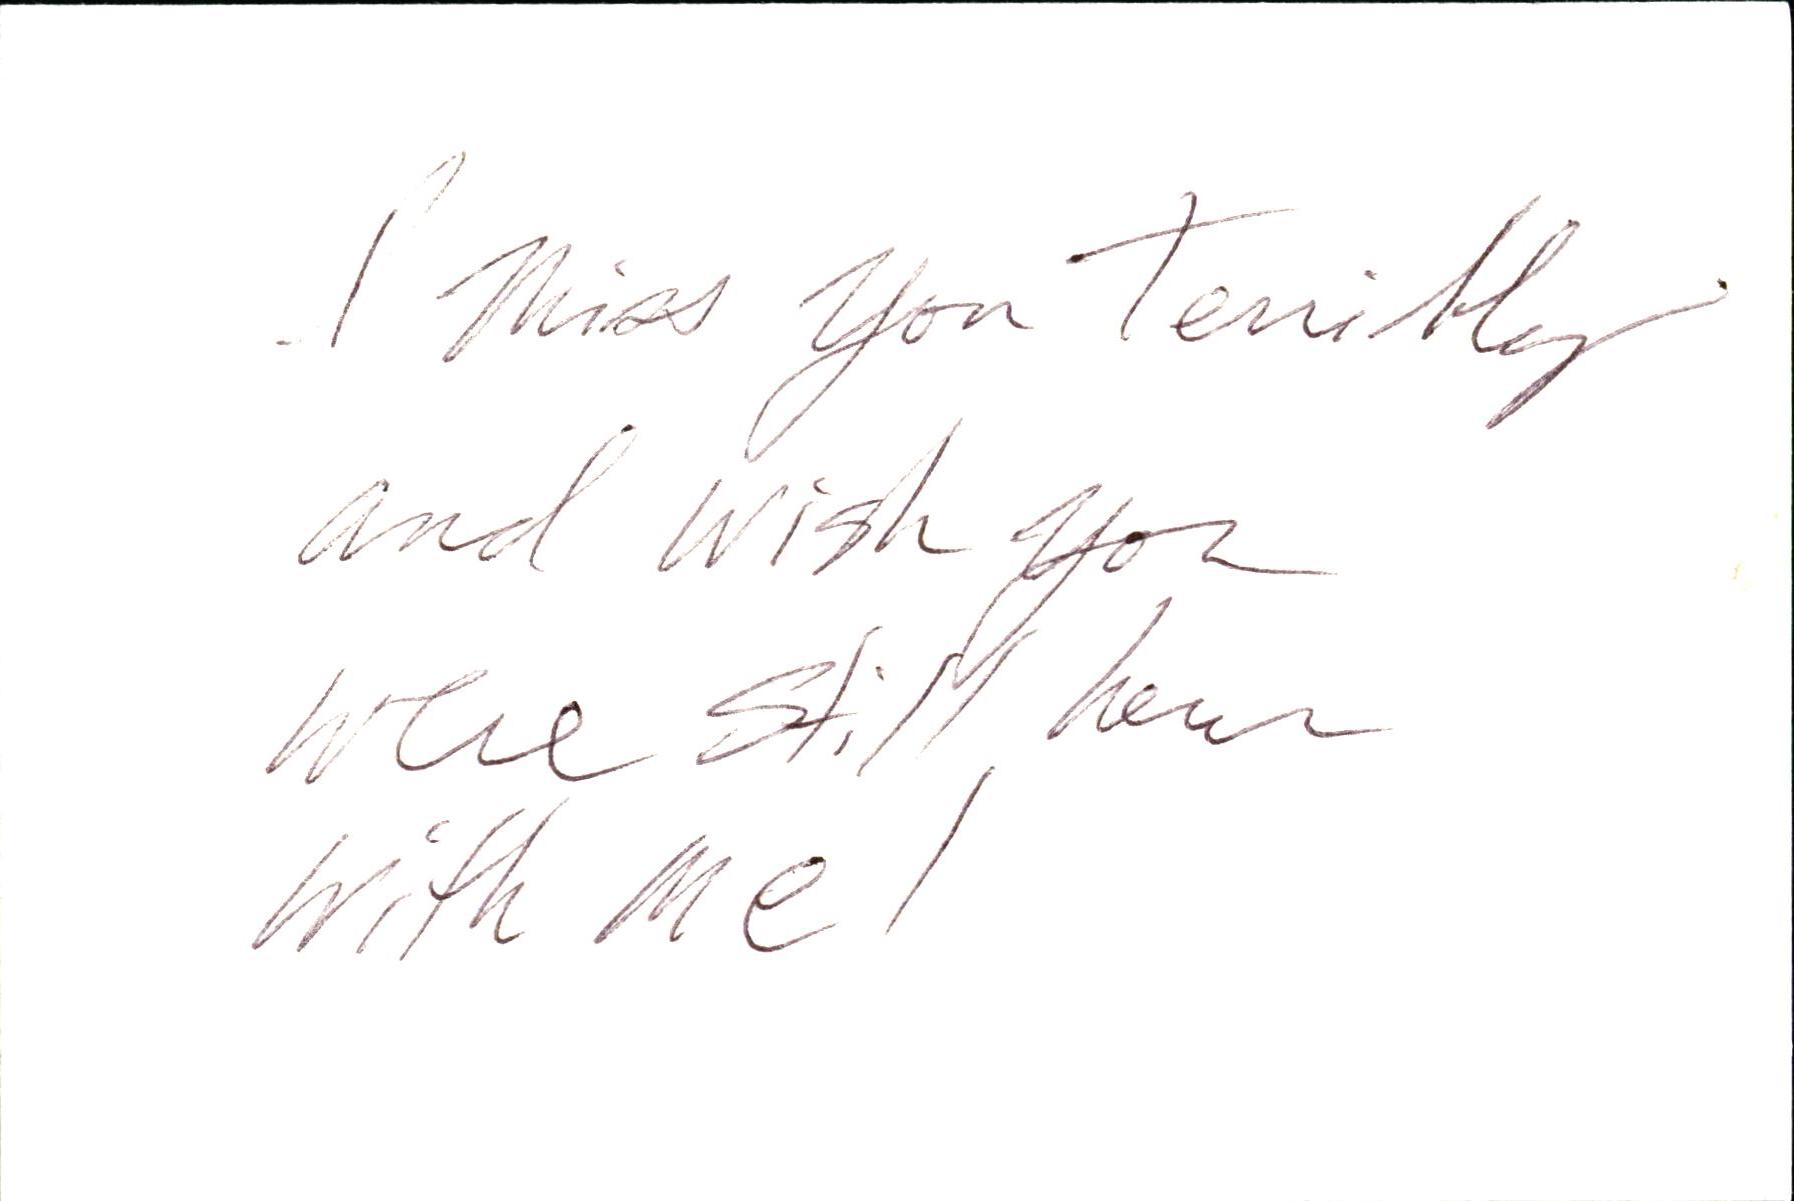 I miss you terribly
and wish you
were still here
with me!